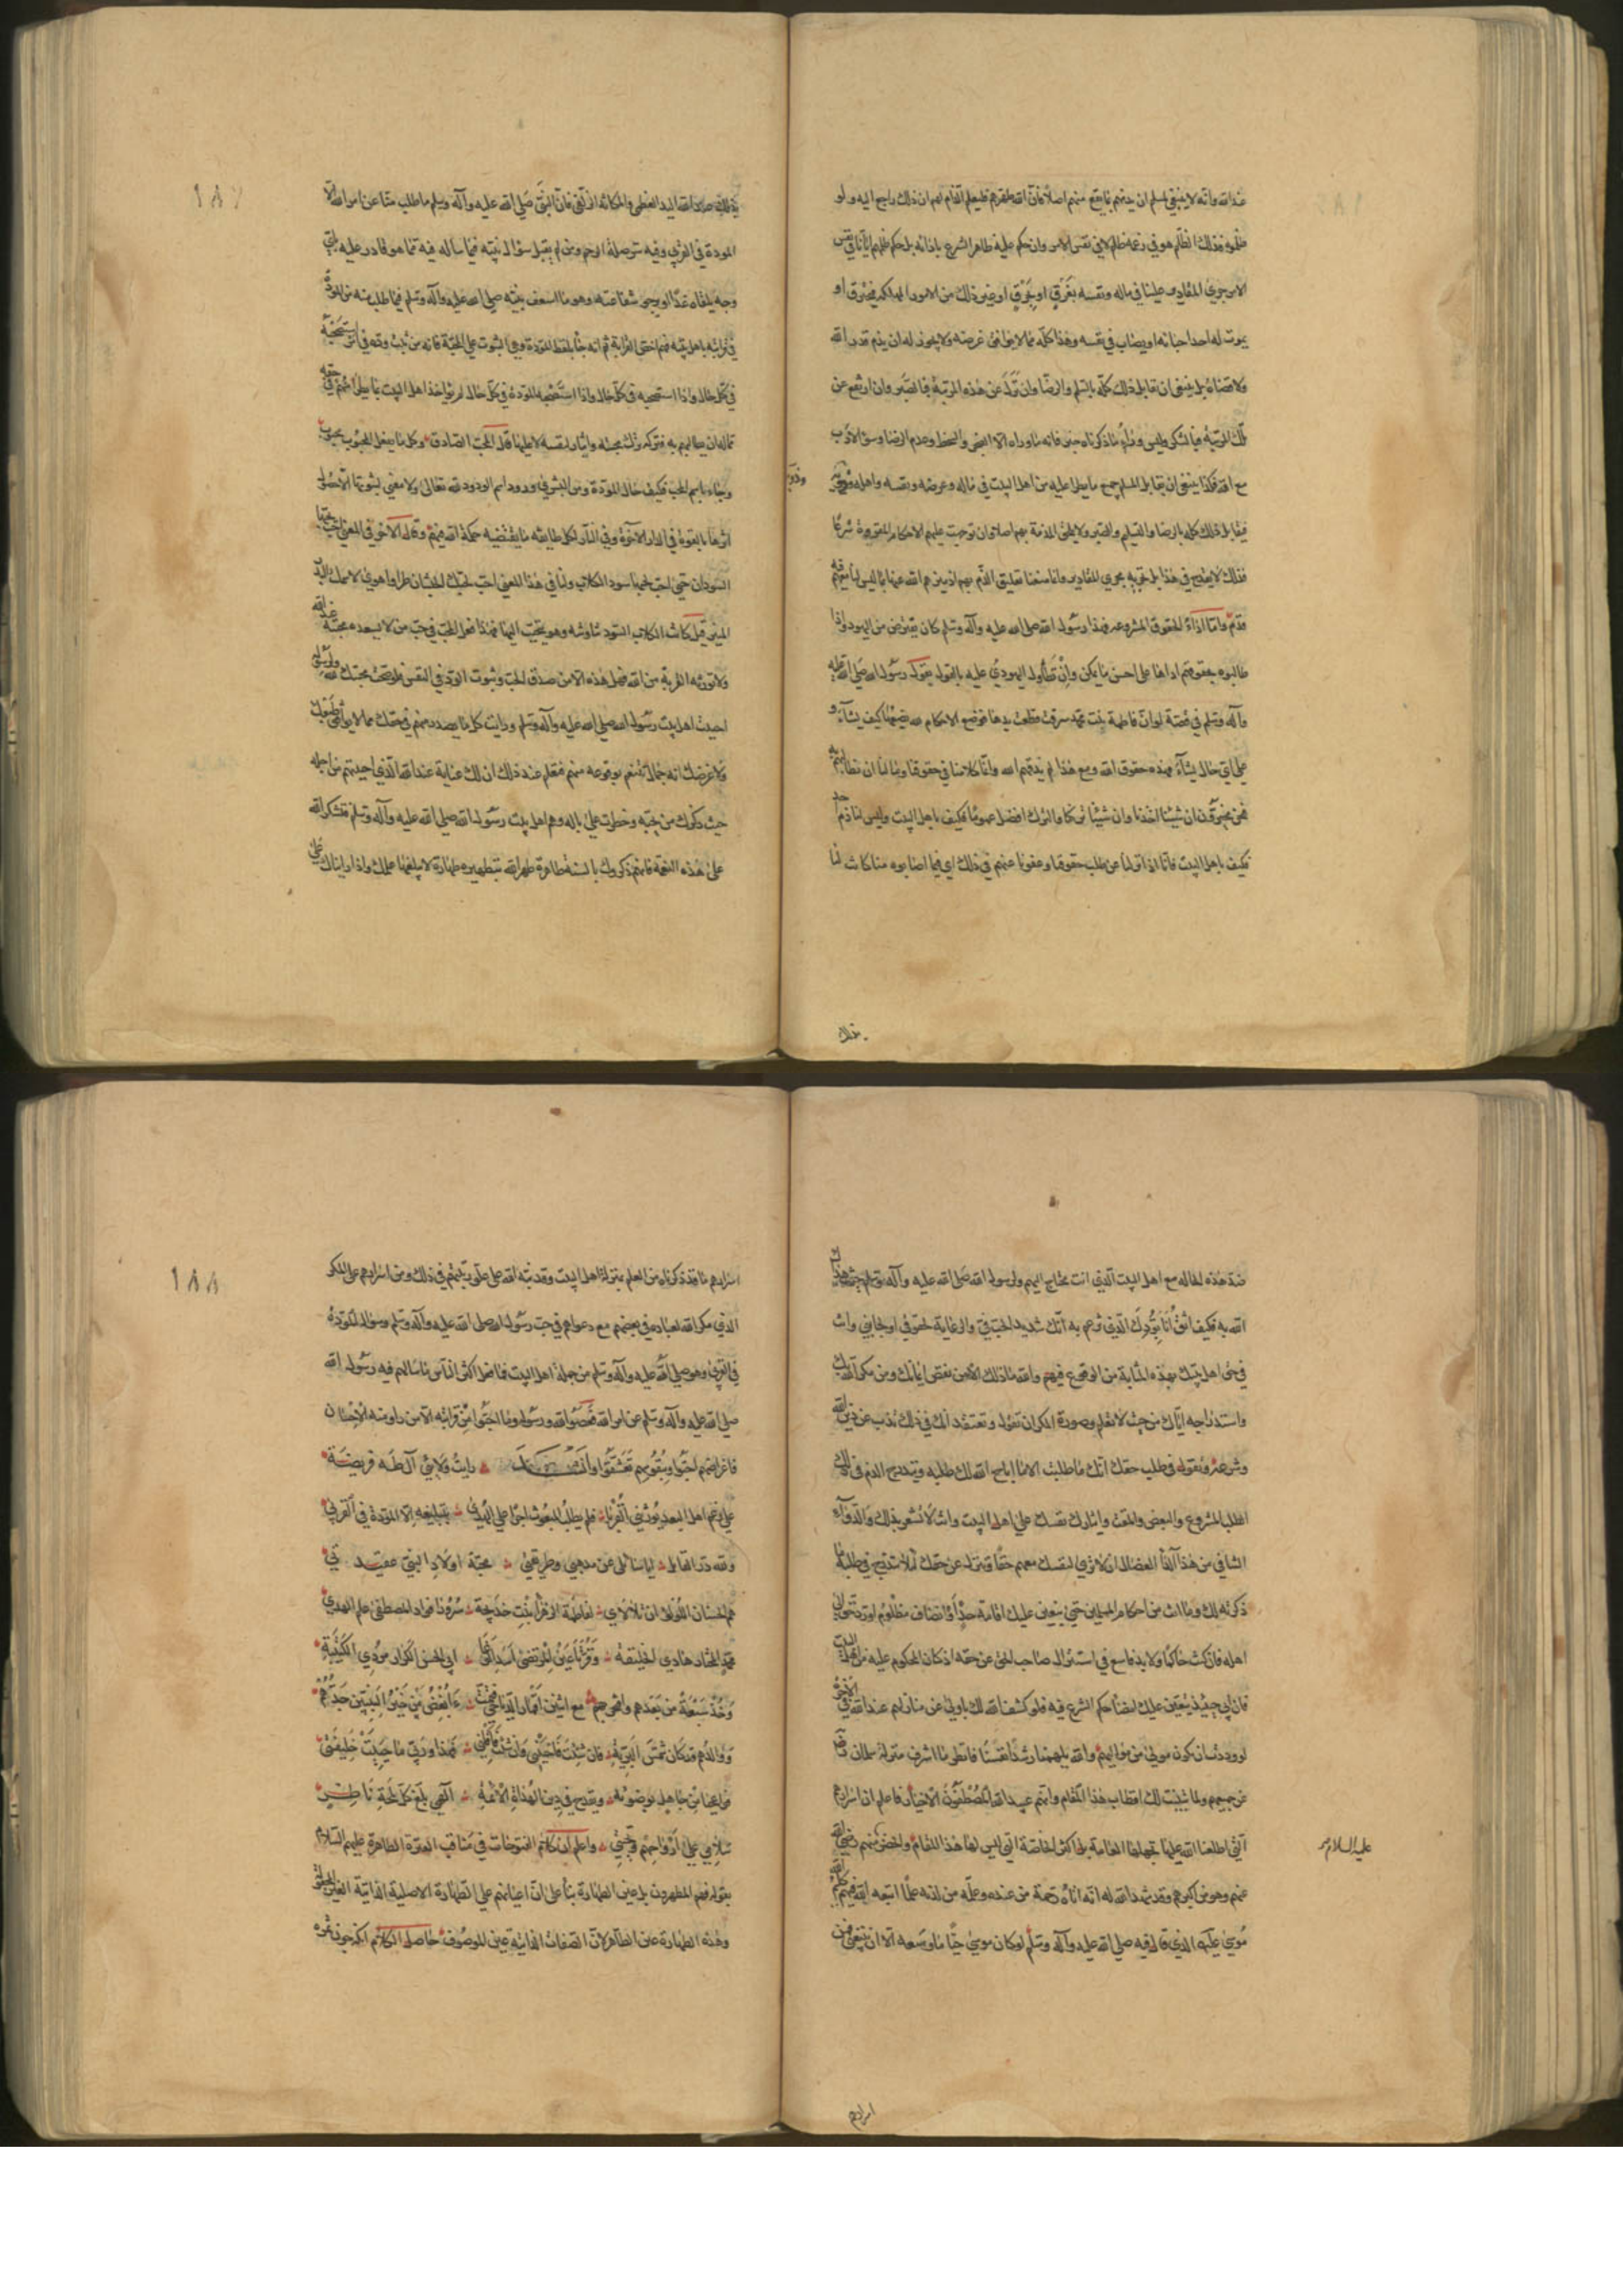 عند الله وانه لا ينبغي لمسلم ان يذمهم بما يقع منهم اصلا فان الله طهرهم فليعلم الذام لهم ان ذلك راجع اليه ولو
ظلموه فذلك الظلم هو في زعمه ظلم لا في نفس الامر وان حكم عليه ظاهر الشرع باذائه بل حكم ظلمهم ايانا في نفس
الامر جري المقادير علينا في ماله ونفسه بغرق او بحرق او غير ذلك من الامور المهلكة فيحترق او
يموت له احد احبائه او يصاب في نفسه وهذا كله مما لا يوافق غرضه ولا يجوز له ان يذم قدر الله
ولا قضاءه بل ينبغي ان تقابل ذلك كله بالتسليم والرضا وان نزل عن هذه المرتبة فبالصبر وان ارتفع عن
تلك المرتبة فبالشكر وليس وراء ما ذكرناه خير فانه ما وراءه الا الضجر والسخط وعدم الرضا وسوء الادب
مع الله فكذا ينبغي ان يقابل المسلم جميع ما يطرأ عليه من اهل البيت في ماله وعرضه ونفسه واهله
وذويه
فيقابل ذلك كله بالرضا والتسليم والصبر ولا يلحق المذمة بهم اصلا وان توجهت عليهم الاحكام المقررة شرعا
فذلك لا يقدح في هذا بل يجريه مجري المقادير وانما منعنا تعليق الذم بهم اذ ميزهم الله عنا بما ليس لنا معهم فيه
قدم واما اداء الحقوق المشروعه فهذا رسول الله صلى الله عليه وآله وسلم كان يقترض من اليهود واذا
طالبوه بحقوقهم اداها على احسن ما يمكن وان تطاول اليهودي عليه بالقول يقول رسول الله صلى الله عليه
وآله وسلم في قصة لو ان فاطمة بنت محمد سرقت قطعت يدها فوضع الاحكام لله يضعها كيف يشاء و
على اي حال يشاء فهذه حقوق الله ومع هذا لم يذمهم الله وانما كلامنا في حقوقنا وما لنا ان نطالبهم به
فنحن مخيرون ان شئنا اخذنا وان شئنا تركنا والترك افضل عموما فكيف باهل البيت وليس لنا ذم احد
فكيف باهل البيت فانا اذا نزلنا عن طلب حقوقنا وعفونا عنهم في ذلك اي فيما اصابوه منا كانت لنا
بذلك
بذلك عند الله اليد العظمى والمكانة الزلفى فان النبي صلى الله عليه وآله وسلم ما طلب منا عن امر الله الا
المودة في القربي وفيه سر صلة الرحم ومن لم يقبل سؤال نبيه فيما سأله فيه مما هو قادر عليه باي
وجه يلقاه غدا او يرجو شفاعته وهو ما اسعف نبيه صلى الله عليه وآله وسلم فيما طلب منه من المودة
في قرابته باهل بيته فهم اخص القرابة ثم انه جاء بلفظ المودة وهي الثبوت على المحبة فانه من ثبت وده في امر استصحبه
في كل حال واذا استصحبه في كل حال واذا استصحبه المودة في كل حال لم يؤاخذ اهل البيت بما يطرأ منهم في حقه
مما له ان يطالبهم به فتركه ترك محبته وايثارا لنفسه لا عليها قال المحب الصادق وكل ما يفعل المحبوب محبوب
وجاء باسم الحب فكيف حال المودة ومن البشري ورود اسم الودود لله تعالى ولا معني لثبوتها الا حصول
اثرها بالفعل في الدار الآخرة وفي النار لكل طائفة ما يقتضيه حكمة الله فيهم وقال الآخر في المعنى احب لحبها
السودان حتى احب لحبها سود الكلاب ولنا في هذا المعني احب لحبك الحبشان طرا واهوي لاسمك البدر
المنير قيل كانت الكلاب السود تناوشه وهو يتحبب اليها فهذا فعل المحب في حب من لا يسعده محبته عند الله
ولا تورثه القربة من الله فهل هذه الا من صدق الحب وثبوت الود في النفس فلو صحت محبتك لله ولرسوله
احببت اهل بيت رسول الله صلى الله عليه وآله وسلم ورايت كل ما يصدر منهم في حقك مما لا يوافق طبعك
ولا غرضك انه جمال تتنعم بوقوعه منهم فتعلم عند ذلك ان لك عناية عند الله الذي احببتهم من اجله
حيث ذكرك من يحبه وخطرت علي باله وهم اهل بيت رسول الله صلى الله عليه وآله وسلم فتشكر الله
على هذه النعمة فانهم ذكروك بالسنة طاهرة طهر الله بتطهيره طهارة لا يبلغها عملك واذا رايناك علي
١٨٧
ضد هذه الحاله مع اهل البيت الذي انت محتاج اليهم ولرسول الله صلى الله عليه وآله وسلم حيث هداك
الله به فكيف اثق انا بودك الذي تزعم به انك شديد الحب في والرعاية لحقوقي او لجانبي وانت
في حق اهل بيتك بهذه المثابة من الوقوع فيهم والله ما ذلك الا من نقص ايمانك ومن مكر الله بك
واستدراجه اياك من حيث لا تعلم وصورة المكر ان تقول وتعتقد انك في ذلك تذب عن دين الله
وشرعه وتقول في طلب حقك انك ما طلبت الا ما اباح الله لك طلبه ويندرج الذم في ذلك
الطلب المشروع والبغض والمقت وايثارك نفسك على اهل البيت وانت لا تشعر بذلك والدواء
الشافي من هذا الداء العضال ان لا تري لنفسك معهم حقا وتنزل عن حقك لئلا يندرج في طلبه ما
ذكرته لك وما انت من احكام المسلمين حتى يتعين عليك اقامة حد او انصاف مظلوم او رد حق الي
اهله فان كنت حاكما ولا بد فاسع في استنزال صاحب الحق عن حقه اذ كان المحكوم عليه من اهل البيت
فان ابي حينئذ يتعين عليك امضاء حكم الشرع فيه فلو كشف الله لك يا ولي عن منازلهم عند الله في الآخرة
لوددت ان تكون مولي من مواليهم والله يلهمنا رشد انفسنا فانظر ما اشرف منزلة سلمان رضي
عن جميعهم ولما بينت لك اقطاب هذا المقام وانهم عبيد الله المصطفون الاخيار فاعلم ان اسرارهم
التي اطلعنا الله عليها تجهلها العامة بل اكثر الخاصة التي ليس لها هذا المقام والخضر منهم رضي الله
عليه السلام
عنهم وهو من اكبرهم وقد شهد الله له انه اتاه رحمة من عنده وعلمه من لدنه علما اتبعه فيه كليم الله
موسى عليه الذي قال فيه صلى الله عليه وآله وسلم لو كان موسي حيا ما وسعه الا ان يتبعني فمن
اسرارهم
اسرارهم ما قد ذكرناه من العلم بمنزلة اهل البيت وقد نبه الله على علو رتبتهم في ذلك ومن اسرارهم علم المكر
الذي مكر الله بعباده في بغضهم مع دعواهم في حب رسول الله صلى الله عليه وآله وسلم وسؤاله المودة
في القربي وهو صلى الله عليه وآله وسلم من جملة اهل البيت فما فعل اكثر الناس ما سألهم فيه رسول الله
صلى الله عليه وآله وسلم عن امر الله فعصوا الله ورسوله وما احبوا من قرابته الا من راوا منه الاحسان
فاغراضهم احبوا وبنفوسهم تعشقوا رايت ولائي آل طه فريضة
على رغم اهل البعد يورثني القربا فلم يطلب المبعوث اجرا على الهدي بتبليغه الا المودة في القربي
ولله در القائل ايا سائلي عن مذهبي وطريقتي محبة اولاد النبي عقيدتي
هم الحسنان اللؤلؤان تلألأي لفاطمة الزهراء بنت خديجة سرورا فؤاد المصطفى علم الهدي
محمد المختار هادي الخليقة وقرتا عين المرتضى اسد الوغا ابي الحسن الكرار مردي الكتيبة
وخذ سبعة من بعدهم مع اثنين ءابغض من خير النبيين جدهم
ووالدهم قد كان شمس البرية فهذا وربي ما حييت خليقتي
فيا عجبا من جاهل ويقدح في دين الهداة الائمة الهي بلغ كل لمحة ناظر
سلامي علي ارواحهم وتحيتي واعلم ان كلام الفتوحات في مناقب العترة الطاهرة عليهم السلام
بقوله فهم المطهرون بل عين الطهارة بناء على ان اعيانهم علي الطهارة الاصلية الذاتية
وهذه الطهارة عين الطاهر لان الصفات الذاتية عين الموصوف حاصل الكلام
١٨٨